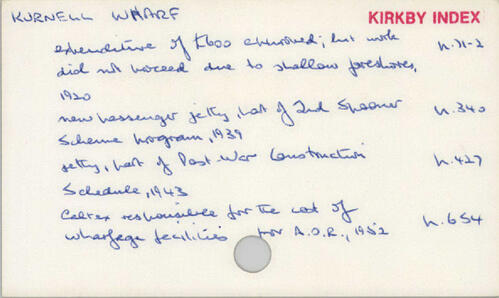 KURNELL WHARF
KIRKBY INDEX
expenditure of £600 approved; but work p.71-2
did not proceed due to shallow foreshores,
1920
new passenger jetty, part of 2nd Spooner p.340
Scheme program, 1939
jetty, part of Post-War Construction p.427
Schedule, 1943
Caltex responsible for the cost of p.654
wharfage facilities A.O.R., 1952